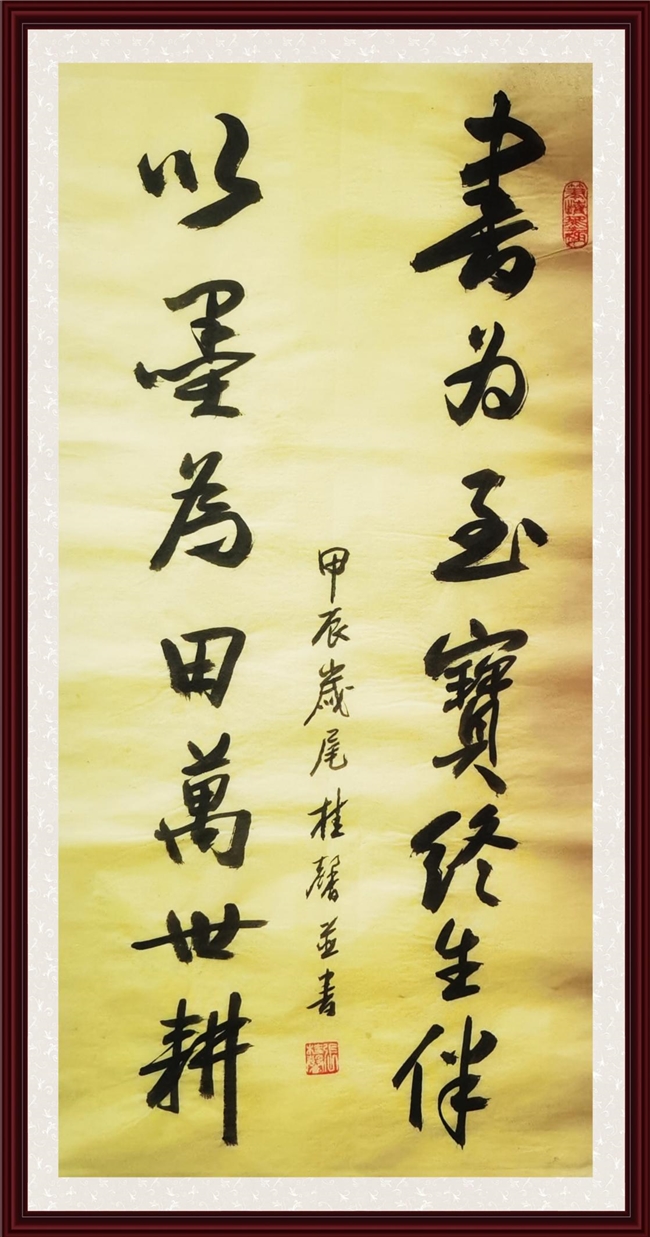 書为至寶终生伴
以墨為田萬世耕
甲辰歲尾桂馨並書